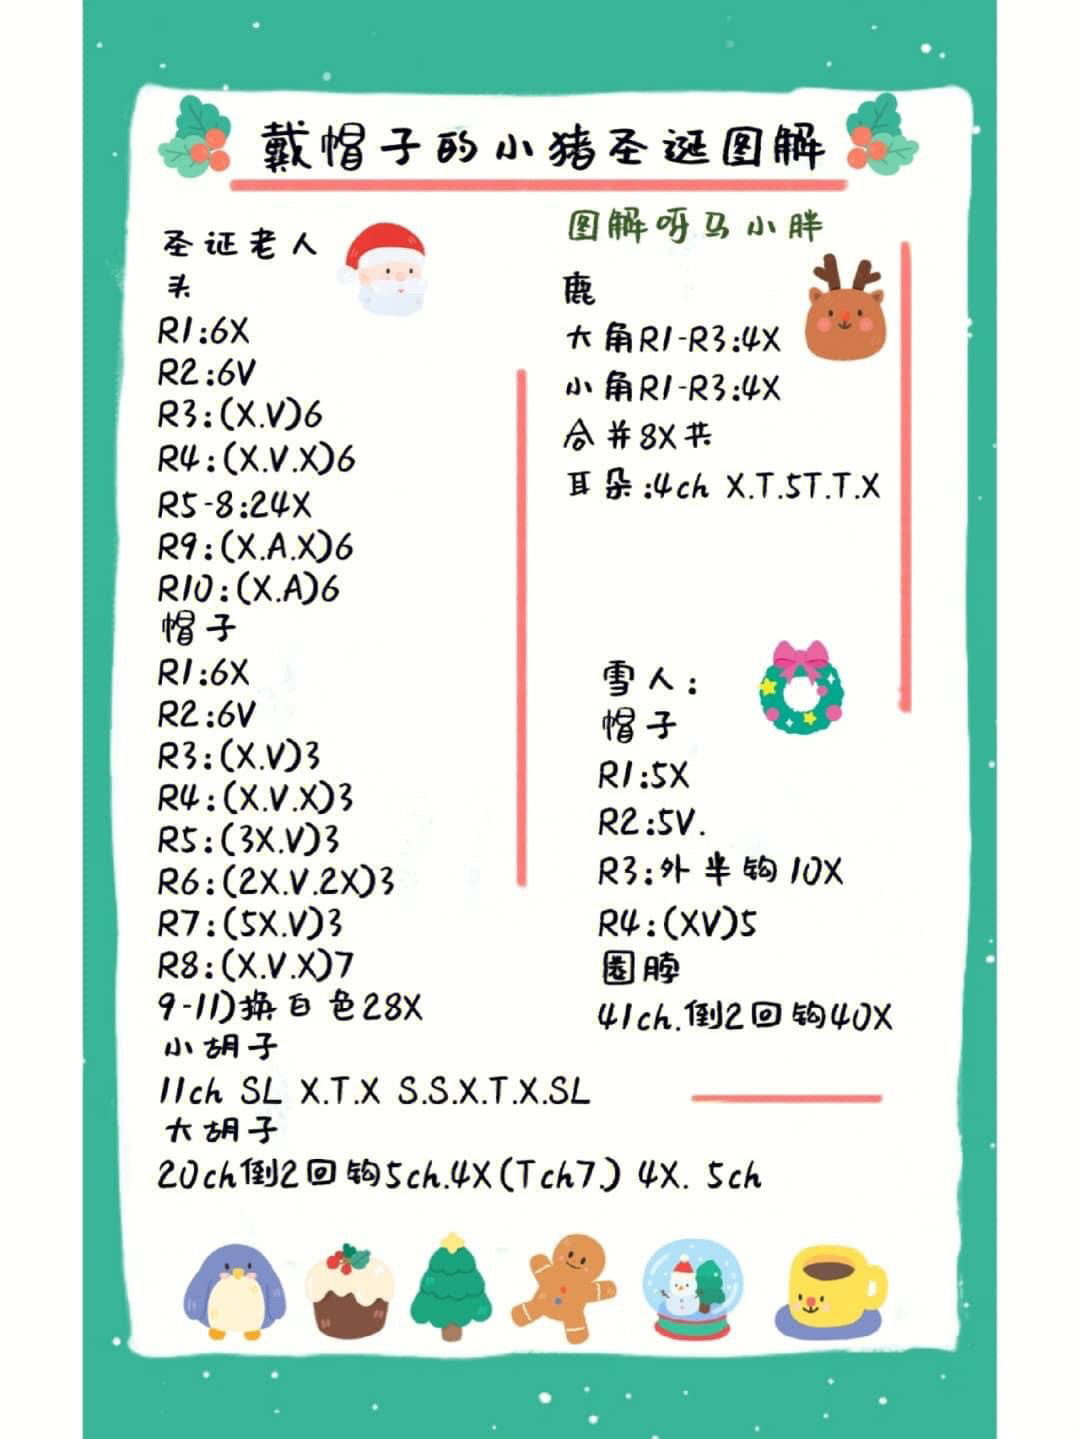 戴帽子的小猪圣诞图解
圣证老人
头
R1:6X
R2:6V
R3:(X.V)6
R4:(X.V.X)6
R5-8:24X
R9:(X.A.X)6
R10:(X.A)6
帽子
R1:6X
R2:6V
R3:(X.V)3
R4:(X.V.X)3
R5:(3X.V)3
R6:(2X.V.2X)3
R7:(5X.V)3
R8:(X.V.X)7
9-11)换白色28X
小胡子
11ch SL X.T.X S.S.X.T.X.SL
大胡子
20ch倒2回钩5ch.4X(Tch7.) 4X. 5ch
图解呀马小胖
鹿
大角R1-R3:4X
小角R1-R3:4X
合并8X共
耳朵:4ch X.T.5T.T.X
雪人:
帽子
R1:5X
R2:5V.
R3:外半钩10X
R4:(XV)5
圈脖
41ch.倒2回钩40X